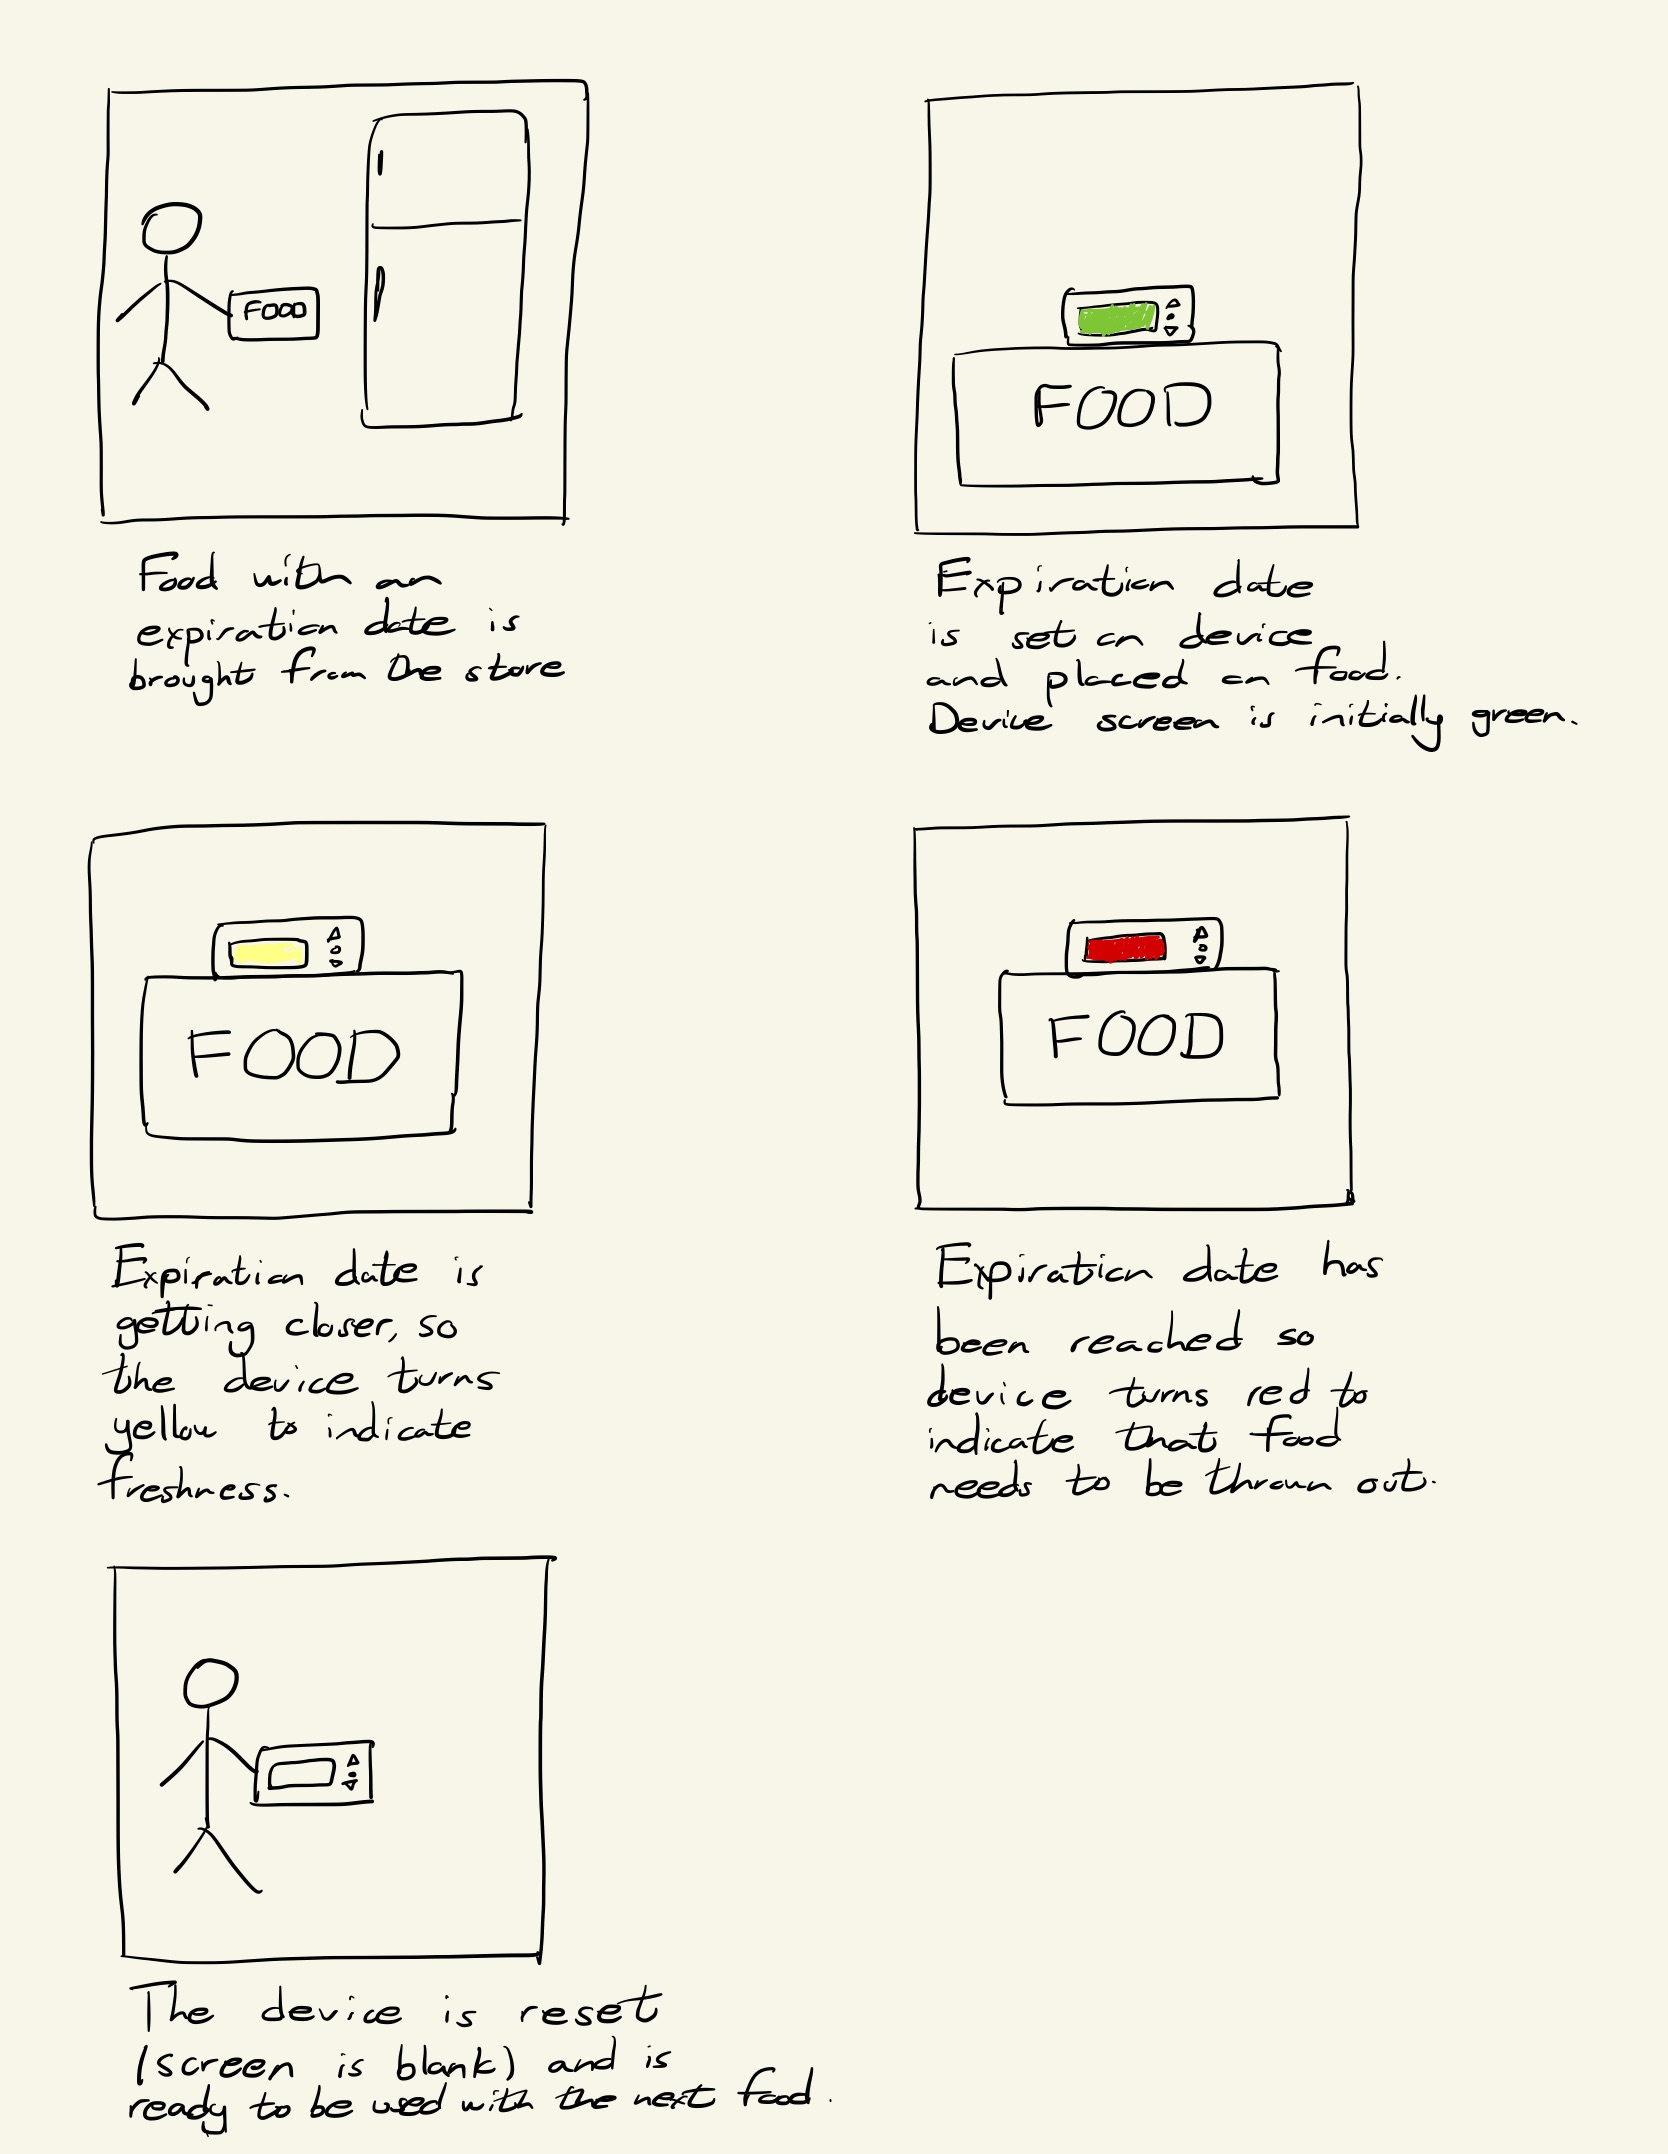 FOOD
Food with an
expiration date is
brought from the store
FOOD
Expiration date
is set on device
and placed on food.
Device screen is initially green.
FOOD
Expiration date is
getting closer, so
the device turns
yellow to indicate
freshness.
FOOD
Expiration date has
been reached so
device turns red to
indicate that food
needs to be thrown out.
The device is reset
(screen is blank) and is
ready to be used with the next food.